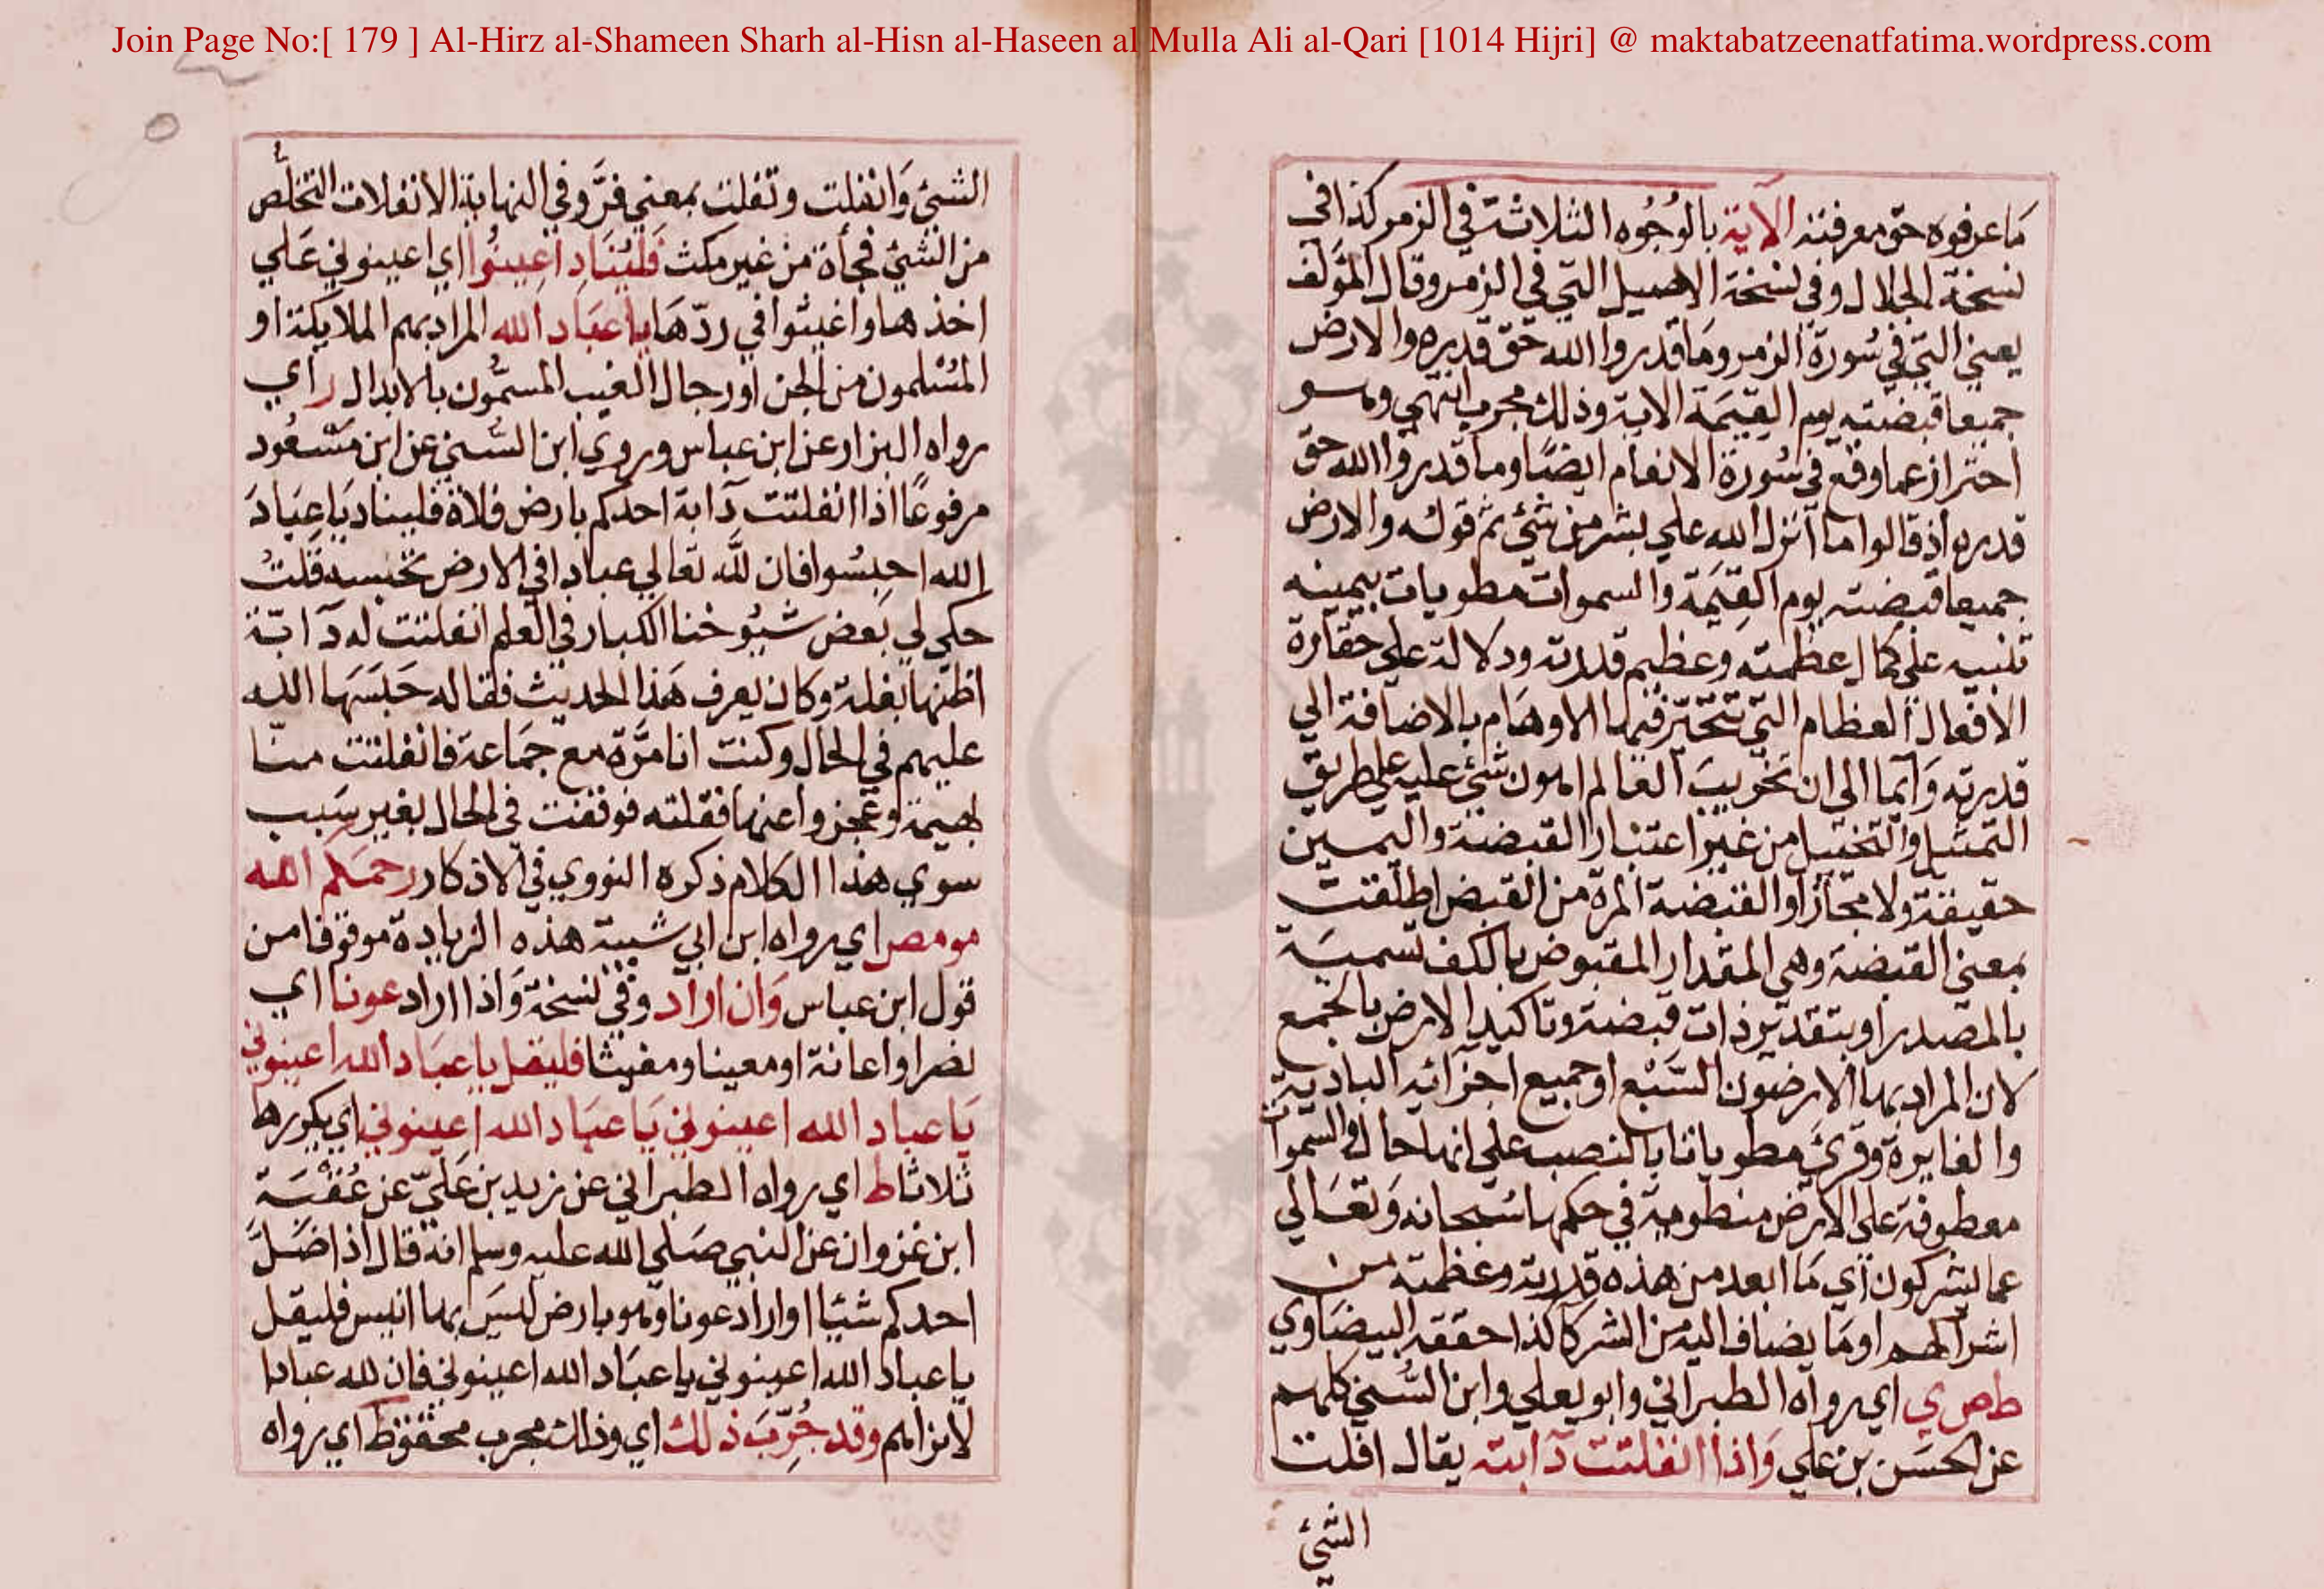 Join Page No:[ 179 ] Al-Hirz al-Shameen Sharh al-Hisn al-Haseen al Mulla Ali al-Qari [1014 Hijri] @ maktabatzeenatfatima.wordpress.com
مَا عرفوه حق معرفته الاية بالوُجُوه الثلاثة في الزمر كذا في
نسخة الجلال وفي نسخة الاصيل التي في الزمر وقال المؤلف
يعني التي في سُورة الزمر ومَا قدروا الله حق قدره والارض
جميعا قبضته يوم القيمَة الاية وذلك مجرب انتهي وهو
احتراز عما وقع في سُورة الانعام ايضًا وما قدروا الله حق
قدره اذ قالوا ما آنزل الله علي بشر من شئ ثم قوله والارض
جميعا قبضته يوم القيمَة والسموات مطويات بيمينه
تنبيه علي كمال عظمته وعظيم قدرته ودلالة علي حقارة
الافعال العظام التي تتحيّر فيها الاوهَام بالاضافة الي
قدرته وَايما الي ان تخريبَ العالم اهون شئ عليه علي طريق
التمثيل والتخييل من غير اعتبار القبضة واليمين
حقيقة ولا مجازا والقبضة المرة من القبض اطلقت
بمعني القبضة وهي المقدار المقبوض بالكف تسميَة
بالمصدر او بتقدير ذات قبضة وتاكيد الارض بالجمع
لان المراد بها الارضون السَّبْع او جميع اجزائه البادية
والغايرة وقرئ مطويات بالنصب علي انها حال والسموات
معطوفة علي الارض منطوية في حكمها سُبحانه وَتعَالي
عما يشركون اي مَا ابعد من هذه قدرته وعظمته من
اشراكهم او مَا يضاف اليه من الشركا كذا حققه البيضَاوي
ط ص ي اي رواه الطبراني وابو يعلي وابن السُّني كلهم
عن الحسَن بن علي وَاذا انفلتت دآبته يقال افلت
الشئ
الشئ وَانفلت وتفلت بمعني فرَّ وفي النهاية الانفلات التخلّص
من الشئ فجأة من غير مكث فَليُنَادِ اَعِينُوا اي اعينوني عَلي
اخذها واغيثوا في ردّهَا يا عبَاد الله المراد بهم الملايكة او
المُسْلمون من الجن او رجال الغيب المسمُّون بالابدال ر اي
رواه البزار عن ابن عباس وروي ابن السُّني عن ابن مَسْعُود
مرفوعًا اذا انفلتت دَآبة احدكم بارض فلاة فليناد يَا عِبَادَ
الله احبِسُوا فان لله تعَالي عبادا في الارض تحبسه قلتُ
حكي لي بَعض شيُوخنا الكبار في العلم انفلتت له دَآبّة
اظنها بغلة وكان يعرف هَذا الحديث فقاله حَبَسَهَا الله
عليهم في الحال وكنت انا مرَّة مع جمَاعة فانفلتت منا
بهيمة وعجزوا عنها فقلته فوقفت في الحال بغير سَبب
سوي هَذا الكلام ذكره النووي في الاذكار رحمَكم الله
مو مص اي رواه ابن ابي شيبة هذه الزيادة موقوفا من
قول ابن عباس وَان اراد وفي نسخة وَاذا اراد عونا اي
نصرا او اعانة او معينا ومغيثا فليقل يا عبَاد الله اعينوني
يَا عباد الله اعينوني يَا عبَاد الله اعينوني اي يكررها
ثلاثا ط اي رواه الطبراني عن زيد بن عَليّ عن عُتْبَة
ابن غزوان عن النبي صَلي الله عليه وسلم انه قال اذا ضَلَّ
احدكم شيئا او اراد عونا وهو بارض ليسَ بها انيس فليقل
يا عباد الله اعينوني يا عبَاد الله اعينوني فان لله عبادا
لا نراهم وقد جُرِّبَ ذلك اي وذلك مجرب محقوظ اي رواه